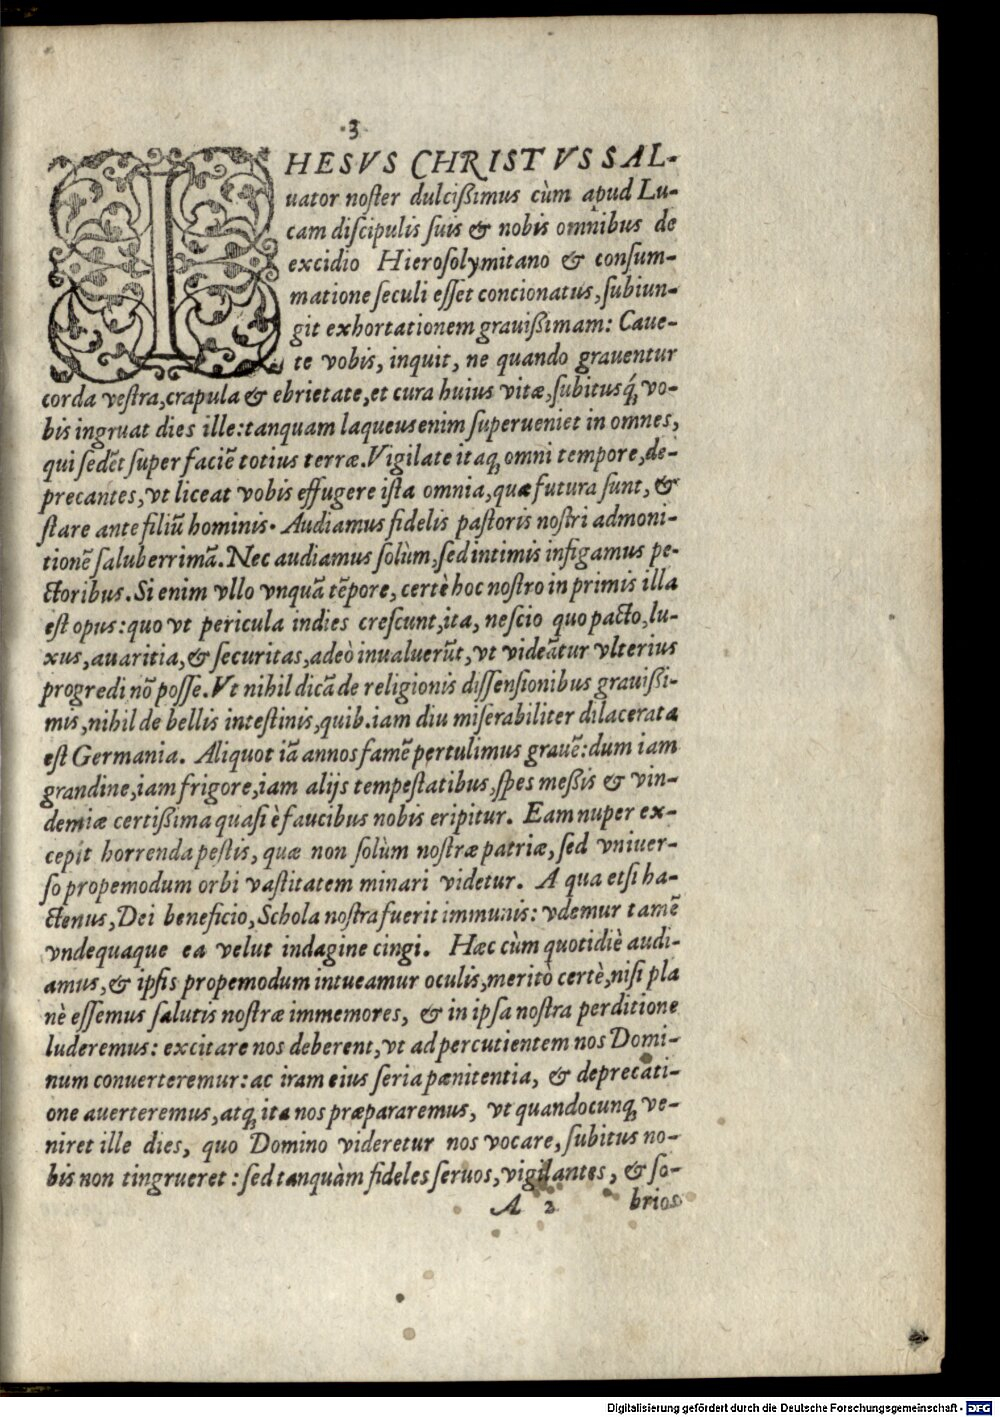 3
IHESVS CHRISTVS SAL-
uator noster dulcißimus cùm apud Lu-
cam discipulis suis & nobis omnibus de
excidio Hierosolymitano & consum-
matione seculi esset concionatus, subiun-
git exhortationem grauißimam: Caue-
te vobis, inquit, ne quando grauentur
corda vestra, crapula & ebrietate, et cura huius vitæ, subitusq́; vo-
bis ingruat dies ille: tanquam laqueus enim superueniet in omnes,
qui sedẽt super faciẽ totius terræ. Vigilate itaq; omni tempore, de-
precantes, vt liceat vobis effugere ista omnia, quæ futura sunt, &
stare ante filiũ hominis. Audiamus fidelis pastoris nostri admoni-
tionẽ saluberrimã. Nec audiamus solùm, sed intimis infigamus pe-
ctoribus. Si enim vllo vnquã tẽpore, certè hoc nostro in primis illa
est opus: quo vt pericula indies crescunt, ita, nescio quo pacto, lu-
xus, auaritia, & securitas, adeò inualuerũt, vt videãtur vlterius
progredi nõ posse. Vt nihil dicã de religionis dissensionibus grauißi-
mis, nihil de bellis intestinis, quib. iam diu miserabiliter dilacerata
est Germania. Aliquot iã annos famẽ pertulimus grauẽ: dum iam
grandine, iam frigore, iam alijs tempestatibus, spes meßis & vin-
demiæ certißima quasi è faucibus nobis eripitur. Eam nuper ex-
cepit horrenda pestis, quæ non solùm nostræ patriæ, sed vniuer-
so propemodum orbi vastitatem minari videtur. A qua etsi ha-
ctenus, Dei beneficio, Schola nostra fuerit immunis: vdemur tamẽ
vndequaque ea velut indagine cingi. Hæc cùm quotidiè audi-
amus, & ipsis propemodum intueamur oculis, meritò certè, nisi pla
nè essemus salutis nostræ immemores, & in ipsa nostra perditione
luderemus: excitare nos deberent, vt ad percutientem nos Domi-
num conuerteremur: ac iram eius seria pænitentia, & deprecati-
one auerteremus, atq; ita nos præpararemus, vt quandocunq; ve-
niret ille dies, quo Domino videretur nos vocare, subitus no-
bis non tingrueret: sed tanquàm fideles seruos, vigilantes, & so-
A 2 brios
Digitalisierung gefördert durch die Deutsche Forschungsgemeinschaft - DFG